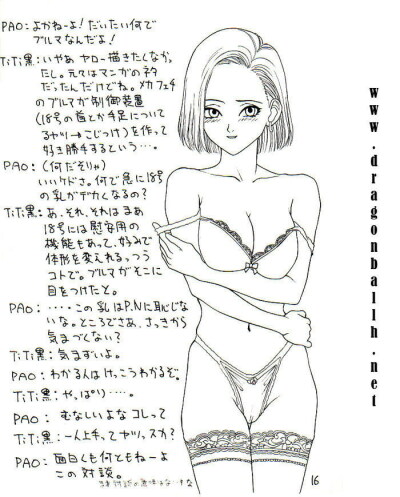 PAO：よかねーよ！だいたい何で
ブルマなんだよ！
TiTi黒：いやぁ ヤロー描きたくなかっ
たし。元々はマンガのネタ
だったんだけどね。メカフェチ
のブルマが制御装置
(18号の首とか手足について
るヤツ→こじつけ)を作って
好き勝手するという…。
PAO：(何だそりゃ)
いいケドさ。何で急に18号
の乳がデカくなるの？
TiTi黒：あ、それ、それはまあ
18号には慰安用の
機能もあって、好みで
体形を変えれる。つう
コトで。ブルマがそこに
目をつけたと。
PAO：‥‥この乳はP.Nに恥じな
いな。ところでさあ、さっきから
気まづくない？
TiTi黒：気まずいよ。
PAO：わかる人はけっこうわかるぞ。
TiTi黒：やっぱり…。
PAO：むなしいよなコレって
TiTi黒：一人上手ってヤツっスか？
PAO：面白くも何ともねーよ
この対談。
16
www.dragonballh.net